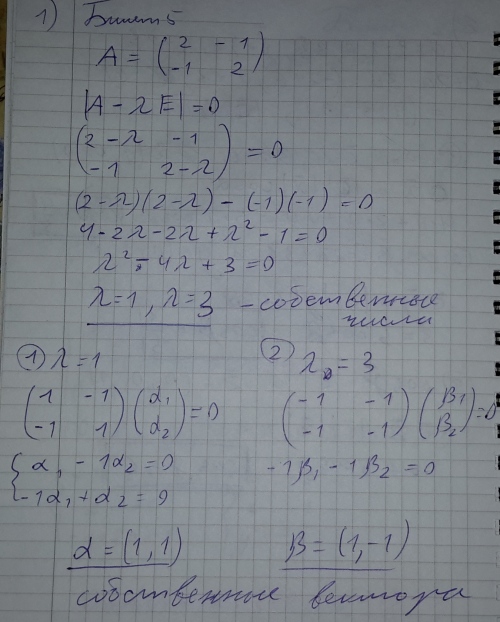 1) Билет 5
A = (2 -1
-1 2)
|A - λE| = 0
(2-λ -1
-1 2-λ) = 0
(2-λ)(2-λ) - (-1)(-1) = 0
4-2λ-2λ+λ²-1=0
λ²-4λ+3=0
λ=1, λ=3 - собственные
числа
① λ=1
(1 -1
-1 1)(α₁
α₂)=0
{α₁ - 1α₂ = 0
-1α₁+α₂ = 0
α = (1, 1)
② λ = 3
(-1 -1
-1 -1)(β₁
β₂)=0
-1β₁-1β₂=0
β = (1,-1)
собственные вектора